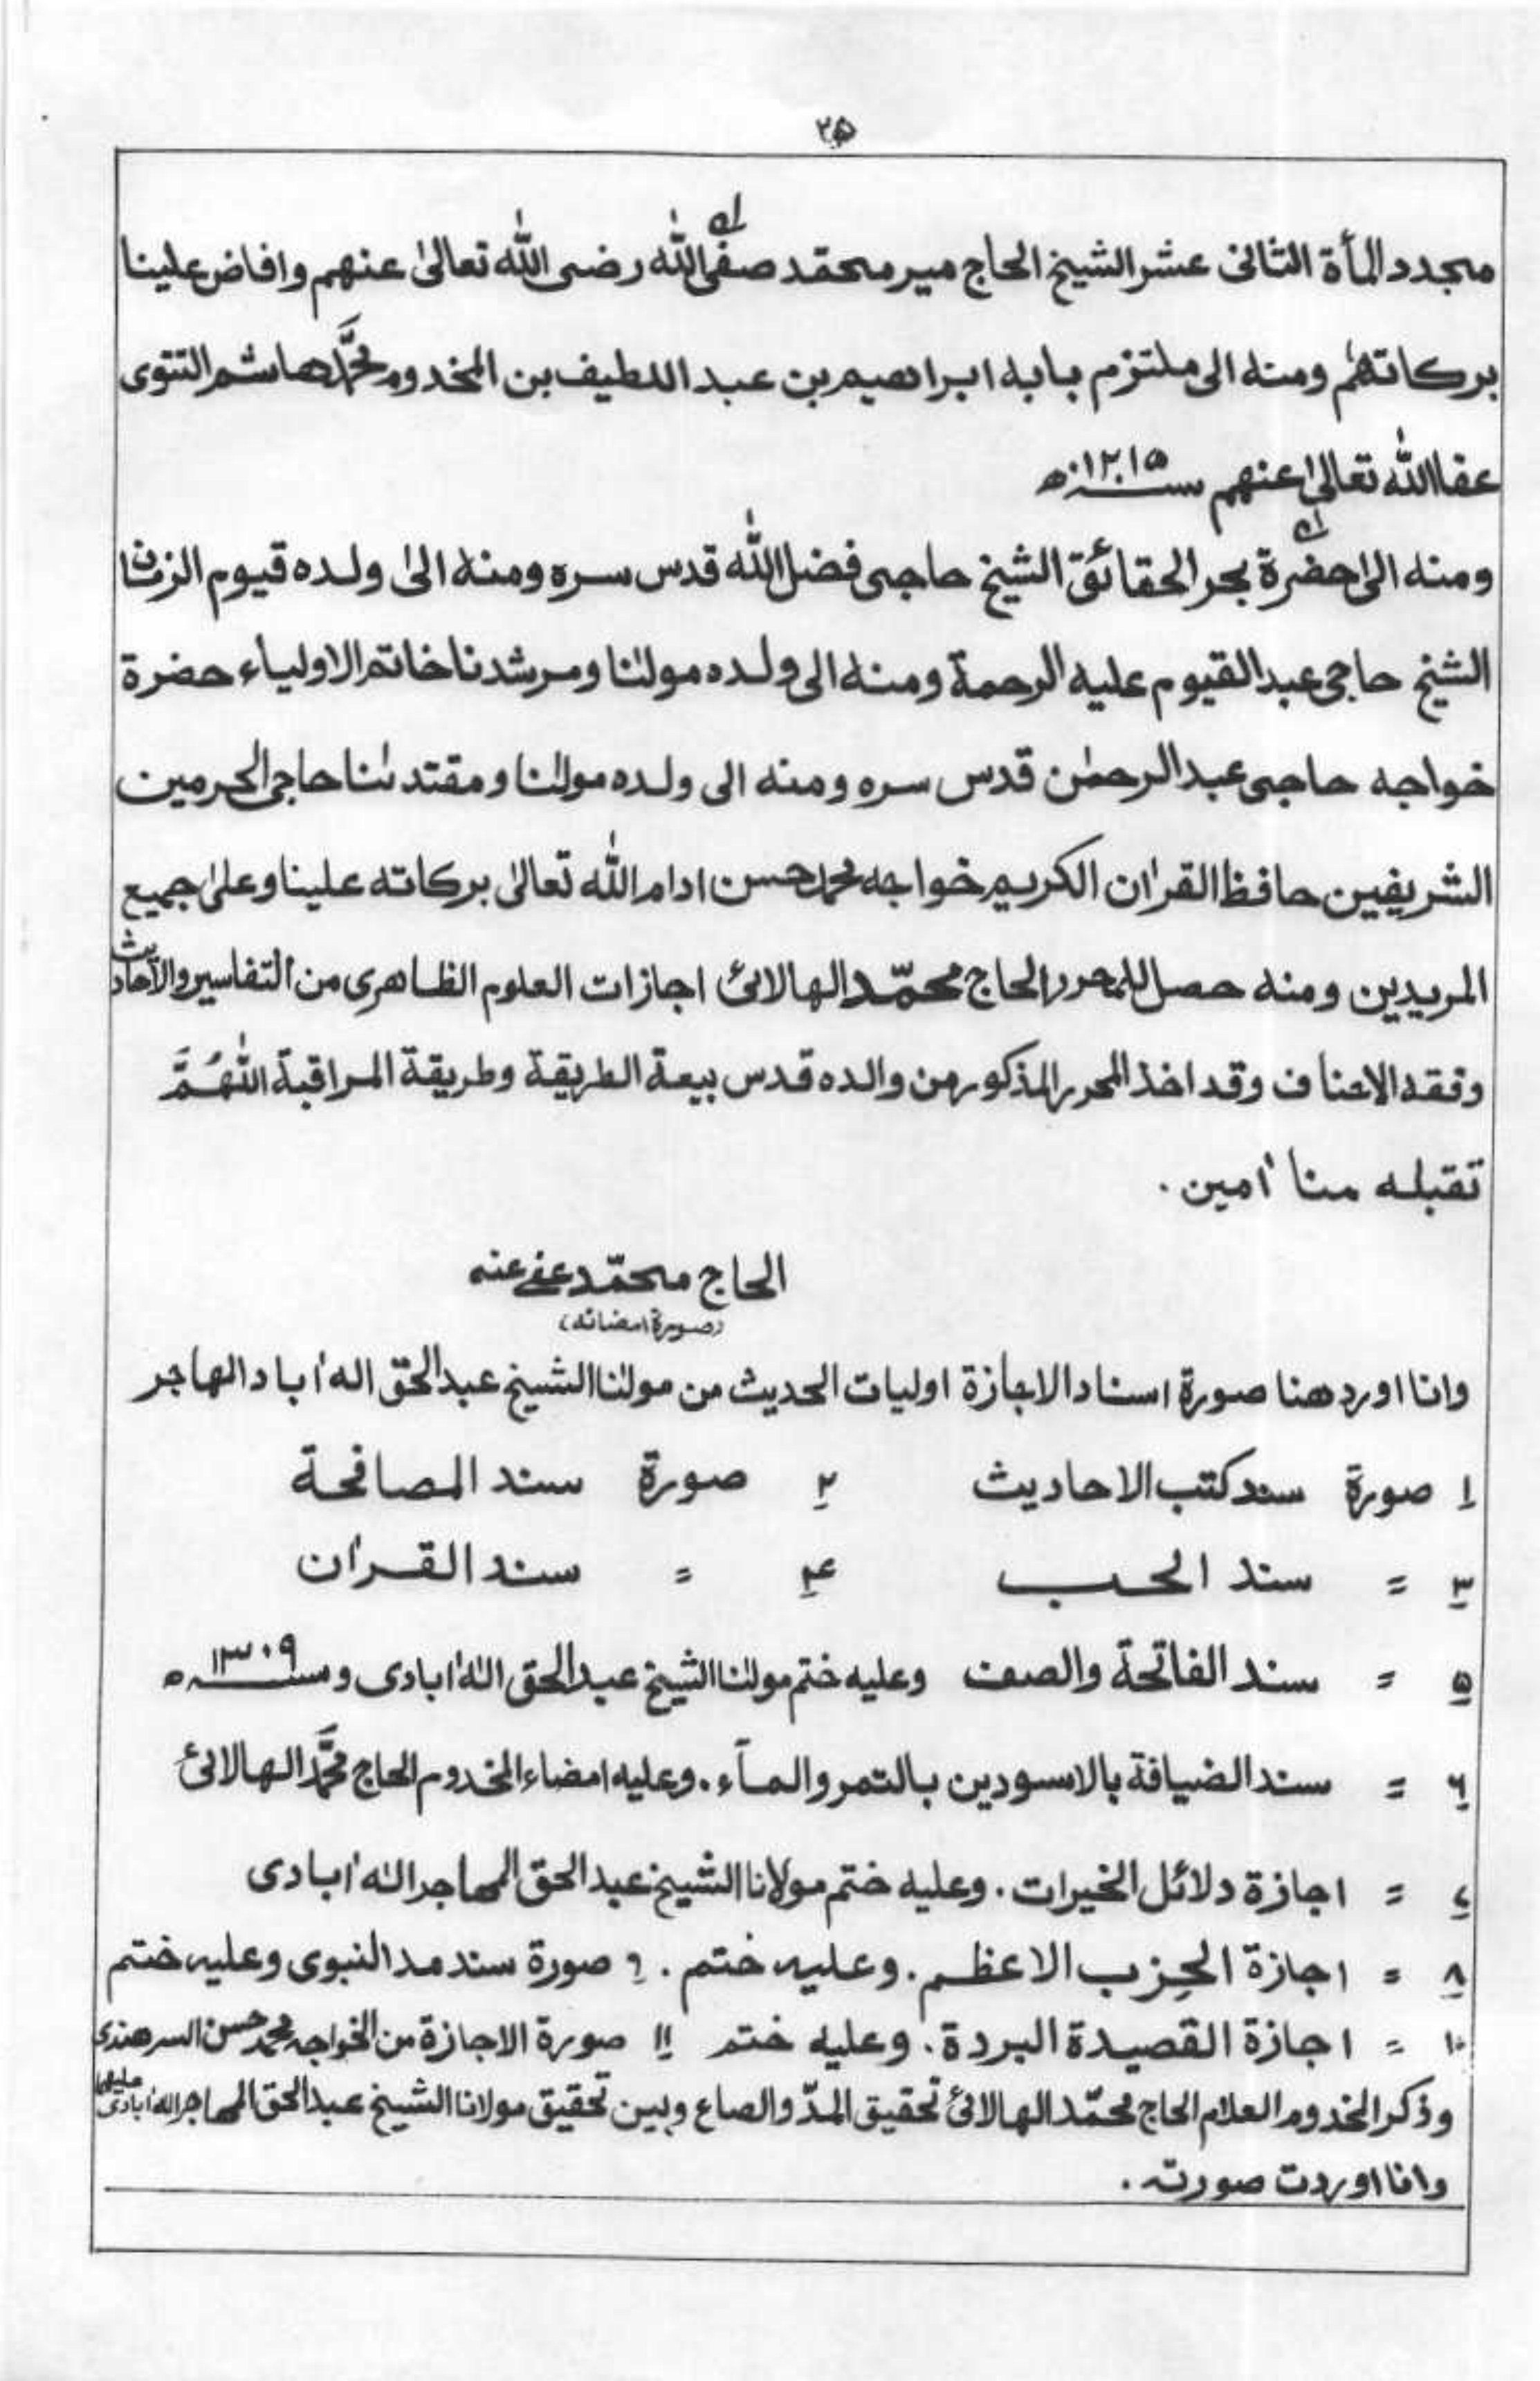 ٢٥
مجدد المأة الثانى عشر الشيخ الحاج مير محمّد صفى الله رضى الله تعالىٰ عنهم وافاض علينا
بركاتهم ومنه الى ملتزم بابه ابراهيم بن عبد اللطيف بن المخدوم محمَّد هاشم التتوى
عفا الله تعالىٰ عنهم سنه ١٢١٥ه
ومنه الىٰ حضرة بحر الحقائق الشيخ حاجى فضل الله قدس سره ومنه الىٰ ولده قيوم الزمان
الشيخ حاجى عبد القيوم عليه الرحمة ومنه الى ولده مولٰنا ومرشدنا خاتم الاولياء حضرة
خواجه حاجى عبد الرحمٰن قدس سره ومنه الى ولده مولٰنا ومقتدٰنا حاجى الحرمين
الشريفين حافظ القرٰان الكريم خواجه محمد حسن ادام الله تعالىٰ بركاته علينا وعلىٰ جميع
المريدين ومنه حصل للمحرر الحاج محمّد الهالائى اجازات العلوم الظاهرى من التفاسير والآحاديث
وفقه الاحناف وقد اخذ المحرر المذكور من والده قدس بيعة الطريقة وطريقة المراقبة اللهُمَّ
تقبله منا اٰمين .
الحاج محمّد عفى عنه
(صورة امضائه)
وانا اورد هنا صورة اسناد الاجازة اوليات الحديث من مولٰنا الشيخ عبد الحق اله اٰباد الهاجر
١ صورة سند كتب الاحاديث ٢ صورة سند المصافحة
٣ = سند الحب ٤ = سند القراٰن
٥ = سند الفاتحة والصف وعليه ختم مولٰنا الشيخ عبد الحق الٰه اٰبادى وسنه ١٣٠٩ه
٦ = سند الضيافة بالاسودين بالتمر والمآء . وعليه امضاء المخدوم الحاج محمَّد الهالائى
٧ = اجازة دلائل الخيرات . وعليه ختم مولانا الشيخ عبد الحق المهاجر الٰه اٰبادى
٨ = اجازة الحِزب الاعظم . وعليه ختم . ٩ صورة سند مد النبوى وعليه ختم
١٠ = اجازة القصيدة البردة . وعليه ختم ١١ صورة الاجازة من الخواجه محمد حسن السرهندى
وذكر المخدوم العلام الحاج محمّد الهالائى تحقيق المدّ والصاع وبين تحقيق مولانا الشيخ عبد الحق المهاجر اله اٰبادى
وانا اوردت صورته .